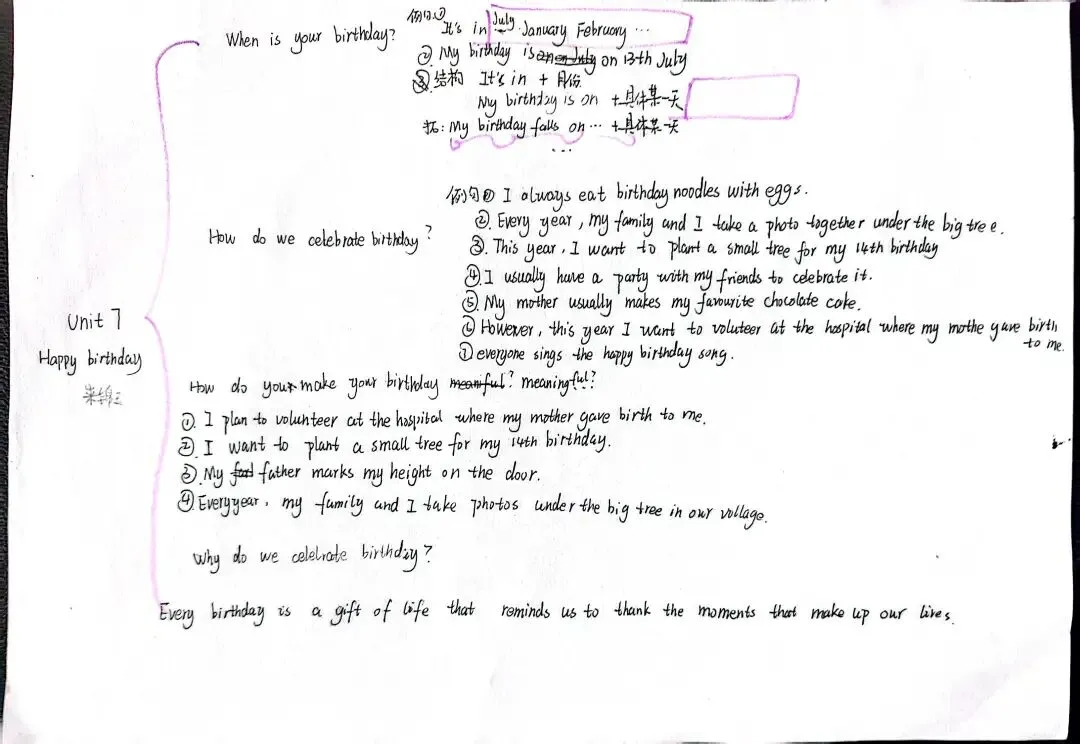 When is your birthday?
例句① It's in July January February ...
② My birthday is on 13th July
③ 结构 It's in + 月份
My birthday is on + 具体某一天
拓: My birthday falls on ... + 具体某一天
...
How do we celebrate birthday?
例句① I always eat birthday noodles with eggs.
②. Every year, my family and I take a photo together under the big tree.
③. This year, I want to plant a small tree for my 14th birthday
④. I usually have a party with my friends to celebrate it.
⑤. My mother usually makes my favourite chocolate cake.
⑥ However, this year I want to voluteer at the hospital where my mothe gave birth
to me.
⑦ everyone sings the happy birthday song.
Unit 7
Happy birthday
How do your make your birthday meaniful? meaningful?
①. I plan to volunteer at the hospital where my mother gave birth to me.
②. I want to plant a small tree for my 14th birthday.
③. My father marks my height on the door.
④ Everyyear, my family and I take photos under the big tree in our vollage.
Why do we celelrate birthday?
Every birthday is a gift of life that reminds us to thank the moments that make up our lives.